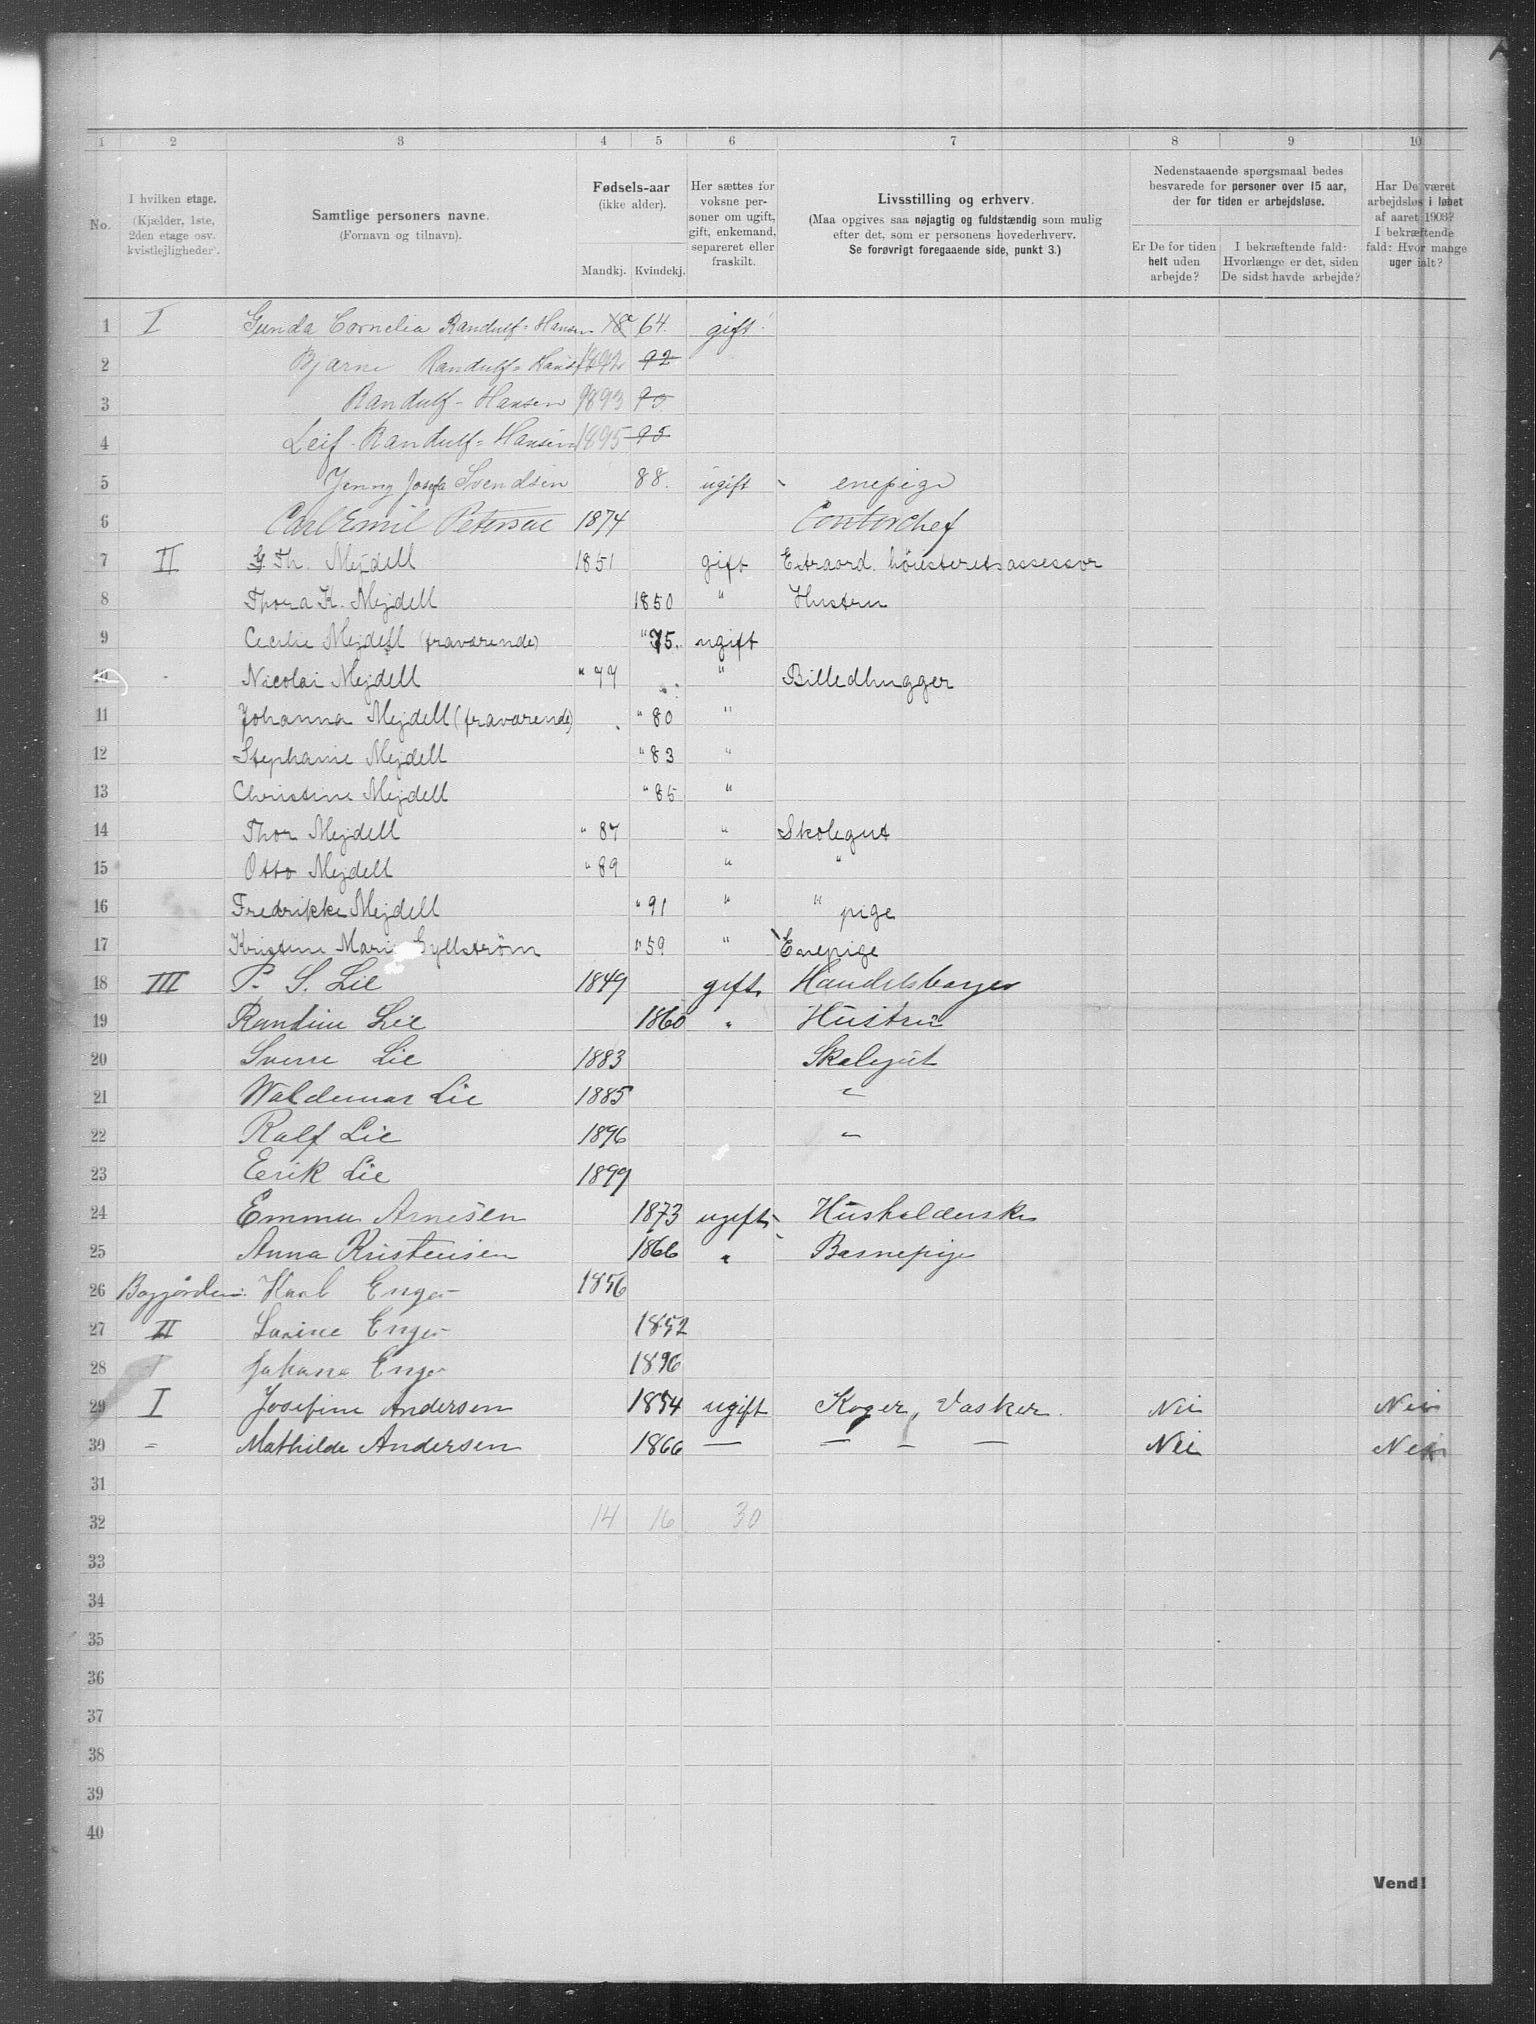 1 2 3 4 5 6 7 8 9 10
No.
I hvilken etage.
(Kjælder, 1ste,
2den etage osv.
kvistlejligheder).
Samtlige personers navne.
(Fornavn og tilnavn).
Fødsels-aar
(ikke alder).
Mandkj. Kvindekj.
Her sættes for
voksne per-
soner om ugift,
gift, enkemand,
separeret eller
fraskilt.
Livsstilling og erhverv.
(Maa opgives saa nøjagtig og fuldstændig som mulig
efter det, som er personens hovederhverv.
Se forøvrigt foregaaende side, punkt 3.)
Nedenstaaende spørgsmaal bedes
besvarede for personer over 15 aar,
der for tiden er arbejdsløse.
Er De for tiden
helt uden
arbejde?
I bekræftende fald:
Hvorlænge er det, siden
De sidst havde arbejde?
Har De været
arbejdsløs i løbet
af aaret 1903?
I bekræftende
fald: Hvor mange
uger ialt?
1 I Gunda Cornelia Randulf-Hansen 64. gift
2 Bjarne Randulf-Hansen 1892 92
3 Randulf-Hansen 1893
4 Leif Randulf-Hansen 1895 95
5 Jenny Josefa Svendsen 88. ugift enepige
6 Carl Emil Petersen 1874 Contorchef
7 II G. Th. Mejdell 1851 gift Extraord. höiesteretsassessor
8 Thora K. Mejdell 1850 " Hustru
9 Cecilie Mejdell (fraværende) " 75. ugift
10 Nicolai Mejdell " 77 " Billedhugger
11 Johanna Mejdell (fraværende) " 80 "
12 Stephanie Mejdell " 83 "
13 Christine Mejdell " 85 "
14 Thor Mejdell " 87 " Skolegut
15 Otto Mejdell " 89 " "
16 Fredrikke Mejdell " 91 " " pige
17 Kristine Marie Gyllstrøm " 59 " Enepige
18 III P. S. Lie 1849 gift Handelsborger
19 Randine Lie 1860 " Hustru
20 Sverre Lie 1883 Skolegut
21 Waldemar Lie 1885 "
22 Ralf Lie 1896 "
23 Eerik Lie 1899
24 Emma Arnesen 1873 ugift Husholderske
25 Anna Kristensen 1866 " Barnepige
26 Baggården: Karl Enger 1856
27 II Larine Enger 1852
28 I Johana Enger 1896
29 I Josefine Andersen 1854 ugift Koger, Vasker. Nei Nei
30 = Mathilde Andersen 1866 — — — — Nei Nei
31
32 14 16 30
33
34
35
36
37
38
39
40
Vend!